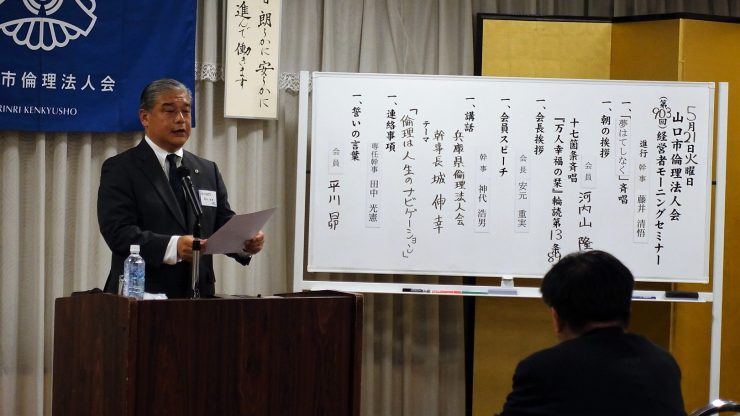 口市倫理法人会
RINRI KENKYUSHO
朗らかに 安らかに
進んで働きます
5月21日火曜日
山口市倫理法人会
(第903回)経営者モーニングセミナー
進行 幹事 藤井 清悟
一、「夢はてしなく」斉唱
一、朝の挨拶
会員 河内山 隆
十七箇条斉唱
『万人幸福の栞』輪読第13条
一、会長挨拶
会長 安元 重実
一、会員スピーチ
幹事 神代 浩男
一、講話
兵庫県倫理法人会
幹事長 城 伸幸
テーマ
「倫理は人生のナビゲーション」
一、連絡事項
専任幹事 田中 光憲
一、誓いの言葉
会員 平川 昴